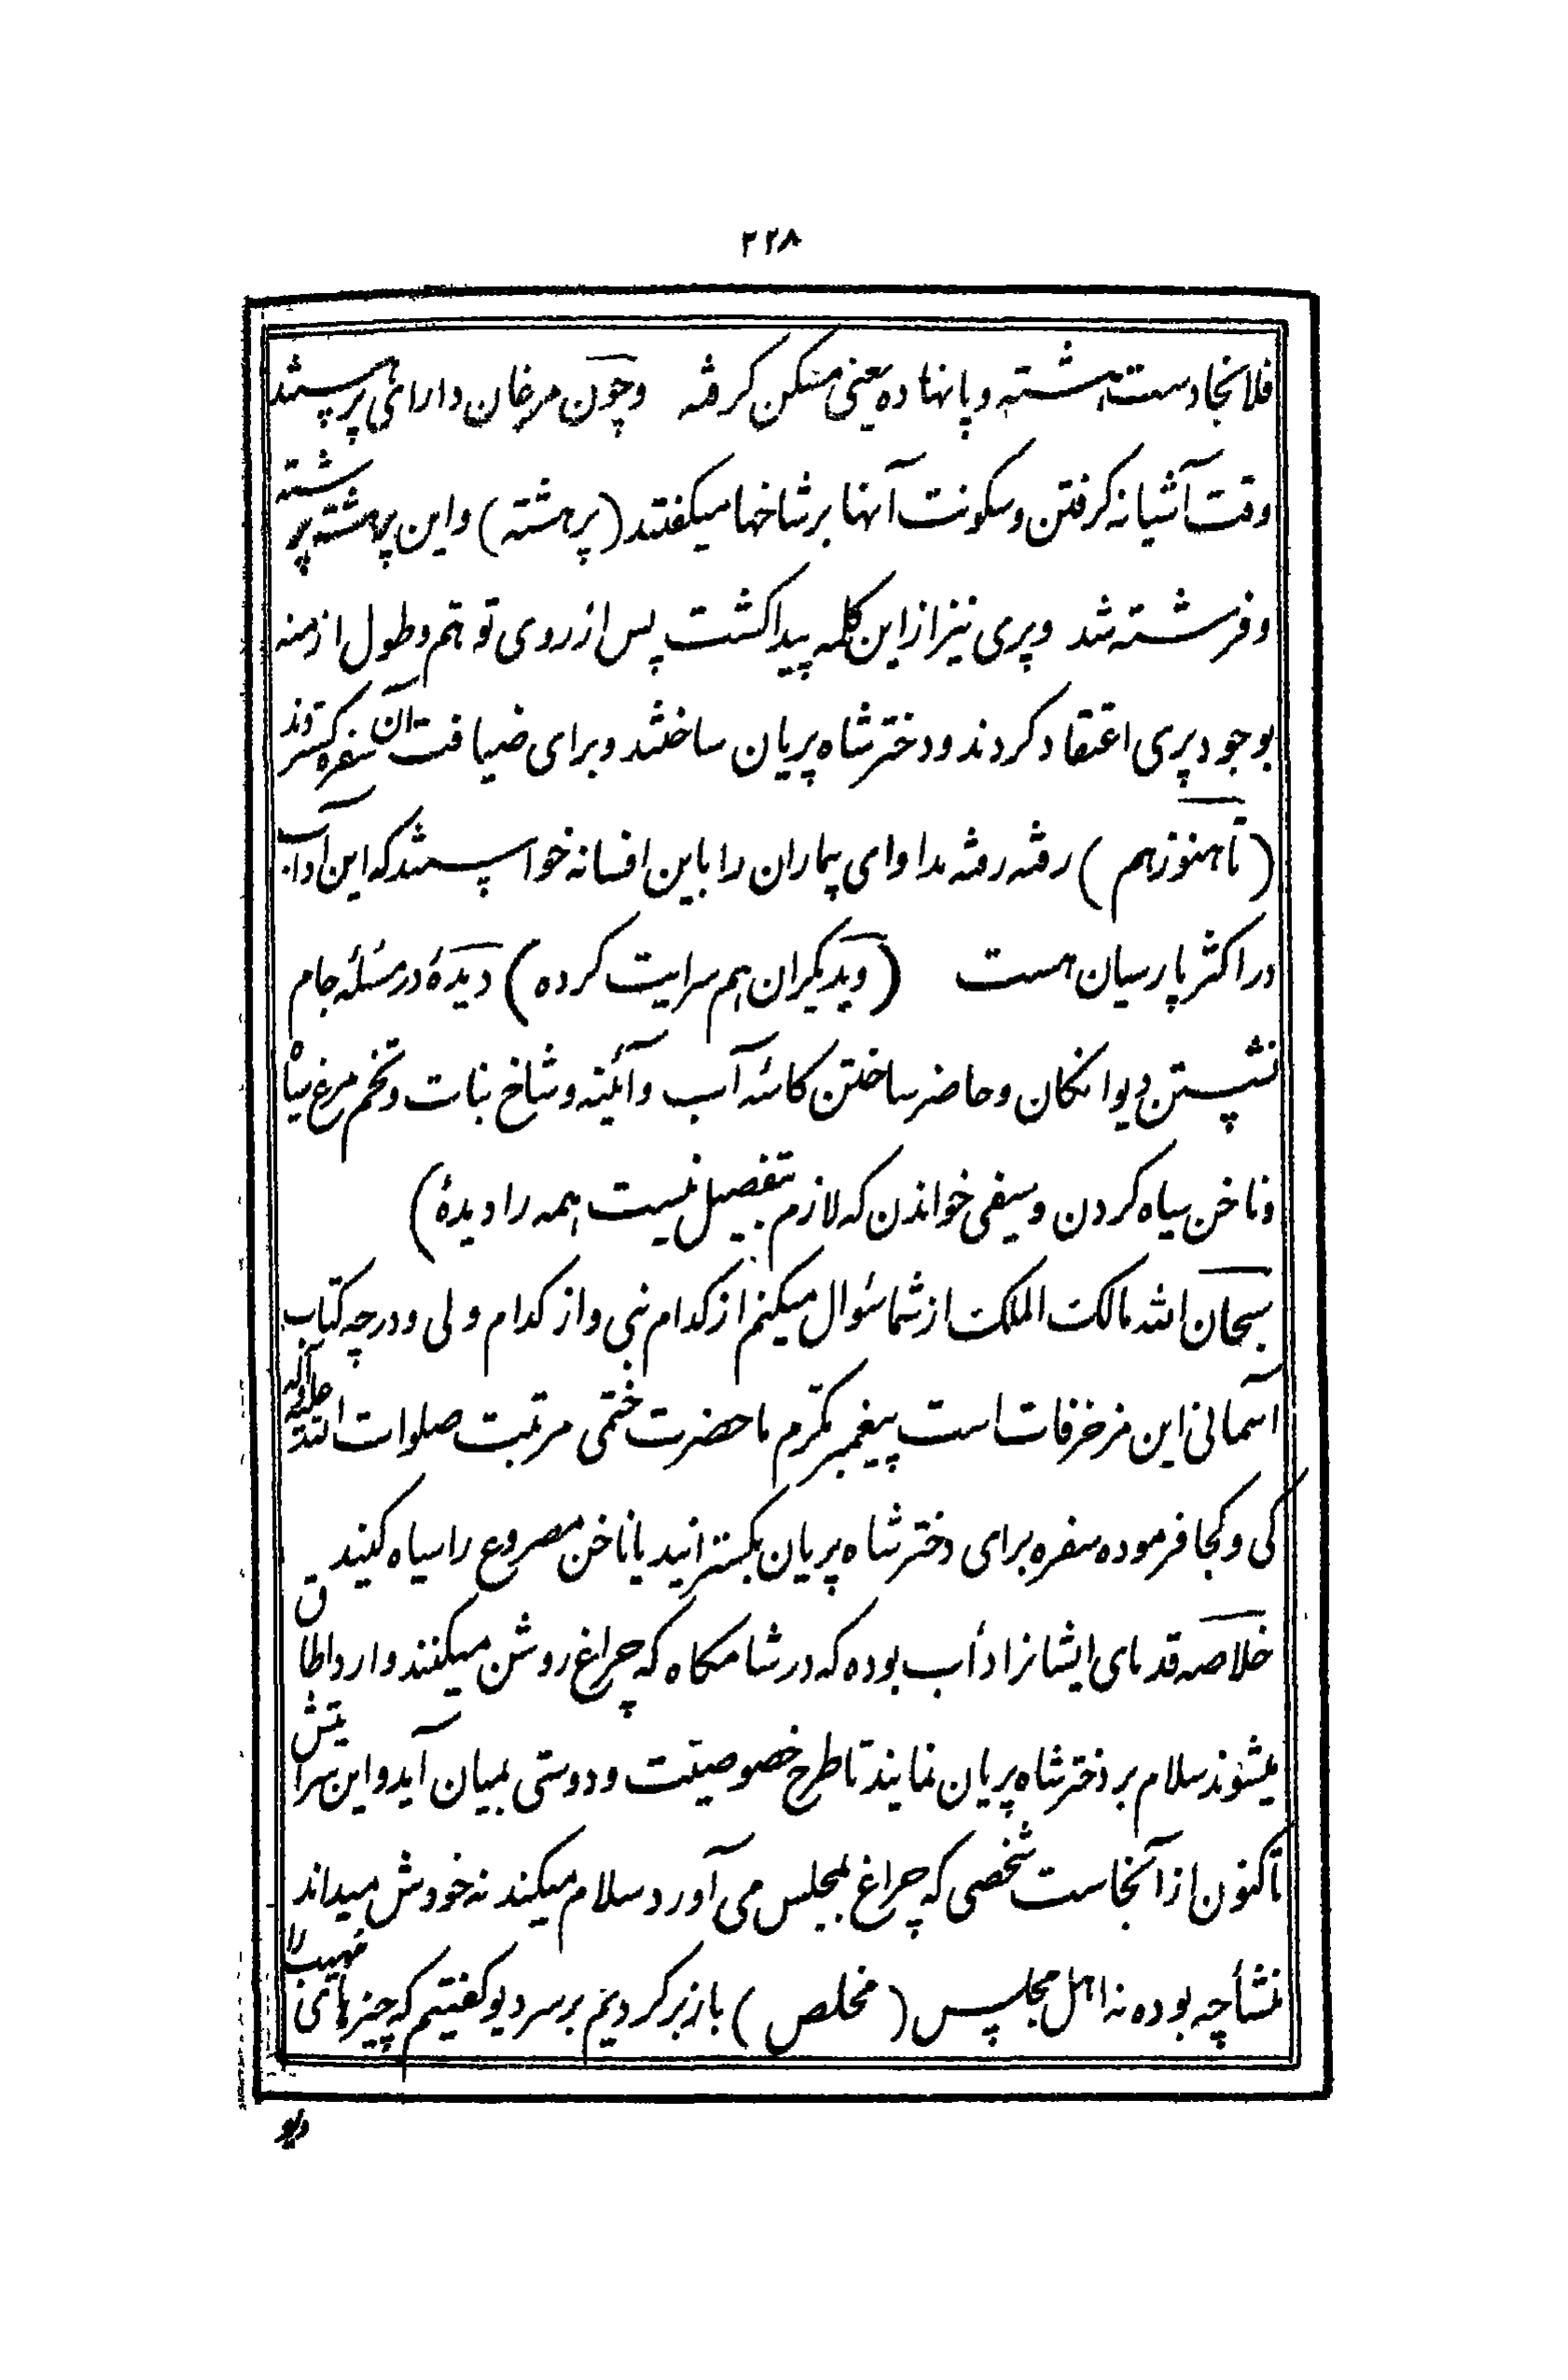 ۲۲۸
فلانجا دست هشته و پا نهاده یعنی مسکن کرفته و چون مرغان دارای پر هستند
وقت آشیانه کرفتن و سکونت آنها بر شاخها میکفتند (پرهشته) و این پرهشته پرشته
و فرشته شد و پری نیز از این کلمه پیدا کشت پس از روی توهم و طول ازمنه
بوجود پری اعتقاد کردند و دختر شاه پریان ساختند و برای ضیافت آن سفره کستردند
(تا هنوز هم) رفته رفته مداوای بیماران را باین افسانه خواستند که این آداب
در اکثر پارسیان هست (و بدیکران هم سرایت کرده) دیدهٔ در مسئلهٔ جام
نشستن دیوانکان و حاضر ساختن کاسهٔ آب و آئینه و شاخ نبات و تخم مرغ سیاه
و ناخن سیاه کردن و سیفی خواندن که لازم بتفصیل نیست همه را دیدهٔ)
سبحان الله مالک الملک از شما سئوال میکنم از کدام نبی و از کدام ولی و در چه کتاب
آسمانی این مزخرفات است پیغمبر مکرم ما حضرت ختمی مرتبت صلوات الله علیه و آله
کی و کجا فرموده سفره برای دختر شاه پریان بکسترانید یا ناخن مصروع را سیاه کنید
خلاصه قدمای ایشانرا دأب بوده که در شامکاه که چراغ روشن میکنند و ارد اطاق
میشوند سلام بر دختر شاه پریان نمایند تا طرح خصوصیت و دوستی بمیان آید و این سرایتش
تاکنون از آنجاست شخصی که چراغ بمجلس می آورد سلام میکند نه خودش میداند
منشأ چه بوده نه اهل مجلس (مخلص) باز برکردیم بر سر دیو کفتیم که چیزهای مهیب را
دیو